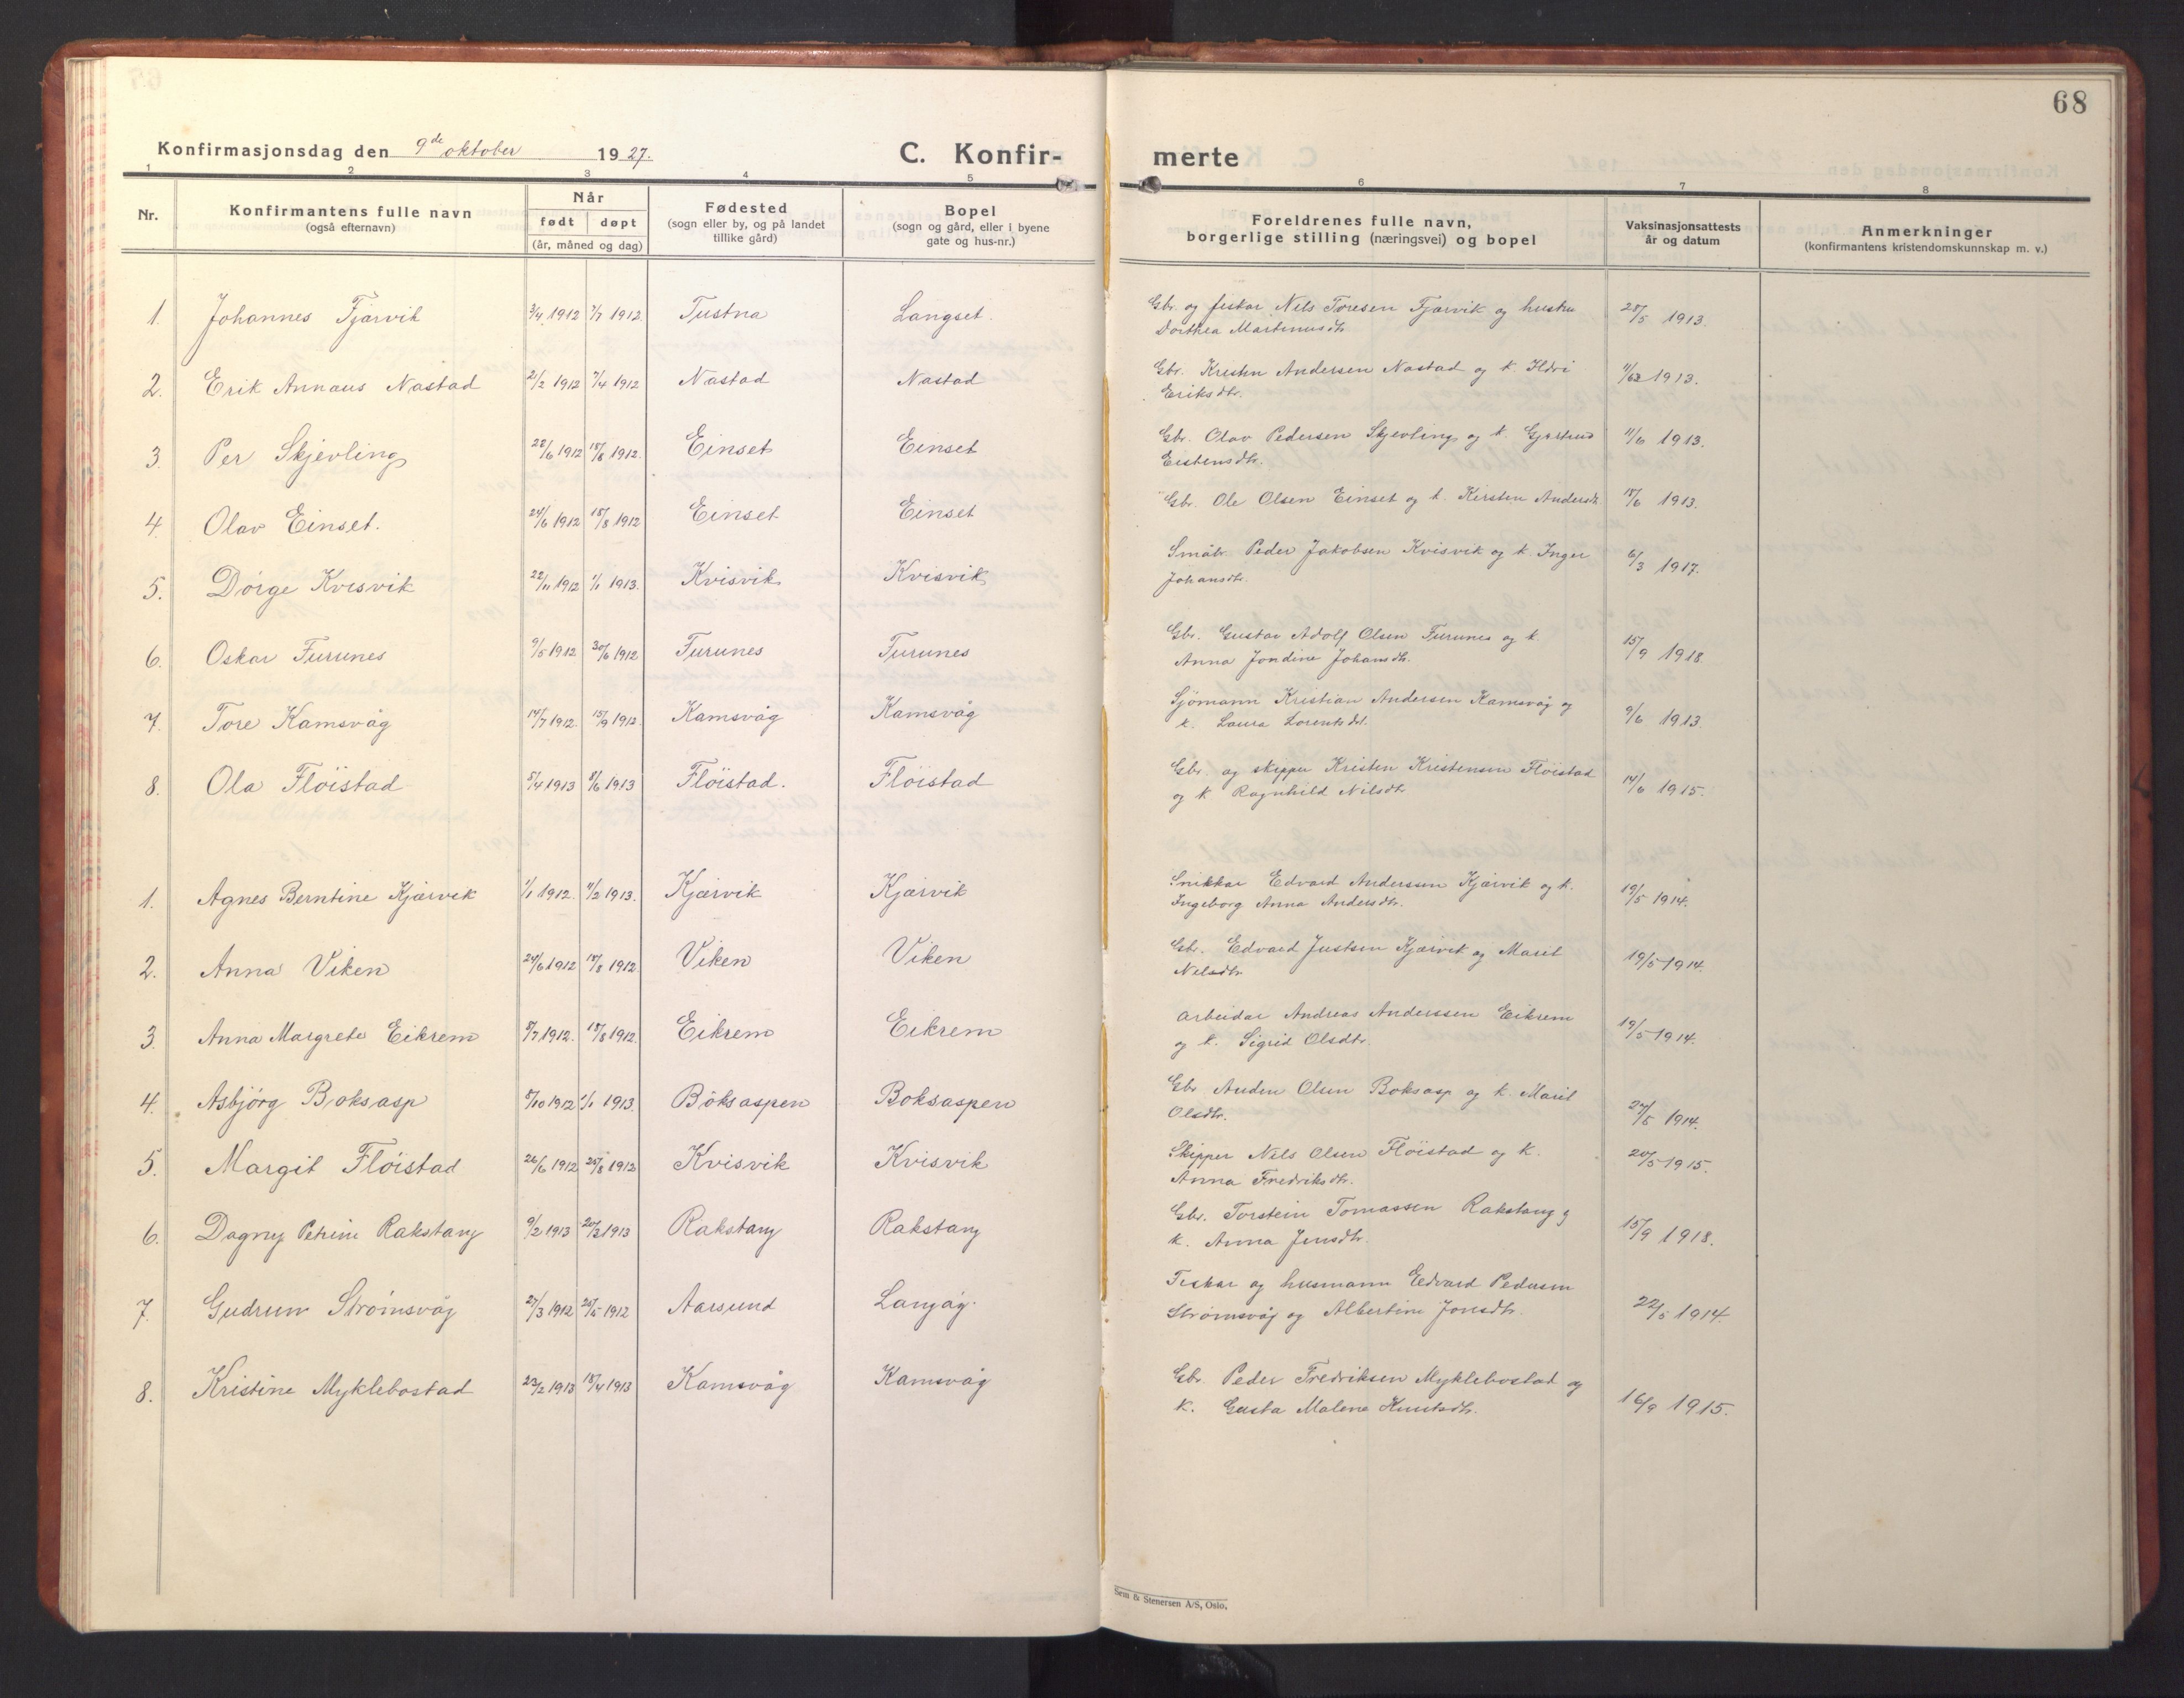 68
Konfirmasjonsdag den 9de oktober 1927.
C. Konfir-
merte
1 2 3 4 5 6 7 8
Nr.
Konfirmantens fulle navn
(også efternavn)
Når
født døpt
(år, måned og dag)
Fødested
(sogn eller by, og på landet
tillike gård)
Bopel
(sogn og gård, eller i byene
gate og hus-nr.)
Foreldrenes fulle navn,
borgerlige stilling (næringsvei) og bopel
Vaksinasjonsattests
år og datum
Anmerkninger
(konfirmantens kristendomskunnskap m. v.)
1. Johannes Fjærvik 3/4 1912 7/7 1912. Tustna Langset. Gbr. og fiskar Nils Toresen Fjærvik og hustru 28/5 1913.
Dorthea Martinusdtr
2. Erik Annæus Nastad 21/2 1912 7/4 1912 Nastad Nastad Gbr. Kristen Andersen Nastad og k. Ildri 1913.
Eriksdtr.
3. Per Skjevling 28/6 1912 18/8 1912. Einset Einset Gbr. Olav Pedersen Skjevling og k. Gjertrud 11/6 1913.
Eistensdtr.
4. Olav Einset. 24/6 1912 18/8 1912 Einset Einset Gbr. Ole Olsen Einset og k. Kirsten Andersdtr 18/6 1913.
5. Dørge Kvisvik 22/11 1912 1/1 1913. Kvisvik Kvisvik Småbr. Peder Jakobsen Kvisvik og k. Inger 6/3 1917.
Johansdtr.
6. Oskar Furunes 9/5 1912 30/6 1912 Furunes Furunes Gbr. Gustav Adolf Olsen Furunes og k. 15/9 1918.
Anna Jondine Johansdtr.
7. Tore Kamsvåg 14/7 1912. 15/9 1912. Kamsvåg Kamsvåg Sjømann Kristian Andersen Kamsvåg og 9/6 1913.
k. Laura Lorentsdt.
8. Ola Fløistad 5/4 1913 8/6 1913 Fløistad. Fløistad Gbr. og skipper Kristen Kristensen Fløistad 14/6 1915.
og k Ragnhild Nilsdtr
1. Agnes Berntine Kjærvik 1/1 1912. 11/2 1913. Kjærvik Kjærvik Snikkar Edvard Anderssen Kjærvik og k. 19/5 1914.
Ingeborg Anna Andersdtr.
2. Anna Viken 24/6 1912 18/8 1912. Viken Viken Gbr. Edvard Justsen Kjærvik og Marit 19/5 1914.
Nilsdtr
3. Anna Margrete Eikrem 8/7 1912. 18/8 1912. Eikrem Eikrem Arbeidar Andreas Anderssen Eikrem 19/5 1914.
og k. Sigrid Olsdtr.
4. Asbjørg Boksasp 8/10 1912 1/1 1913. Bøksaspen Boksaspen Gbr Anden Olsen Boksasp og k. Marit 27/5 1914.
Olsdtr.
5. Margit Fløistad 26/6 1912 25/8 1912 Kvisvik Kvisvik Skipper Nils Olsen Fløistad og k. 20/5 1915.
Anna Fredriksdtr.
6. Dagny Petrine Rakstang 9/2 1913 20/3 1913 Rakstang Rakstang Gbr. Torstein Tomassen Rakstang g 15/9 1918.
k. Anna Jensdtr.
7. Gudrun Strømsvåg 27/3 1912 26/5 1912 Aarsund Langåg. Fiskar og husmann Edvard Pedersen 22/5 1914.
Strømsvåg og Albertine Jonsdtr.
8. Kristine Myklebostad 23/2 1913 18/4 1913 Kamsvåg Kamsvåg Gbr. Peder Fredriksen Myklebostad og 16/9 1915.
k. Gusta Malene Knutsdtr.
Sem & Stenersen A/S, Oslo.